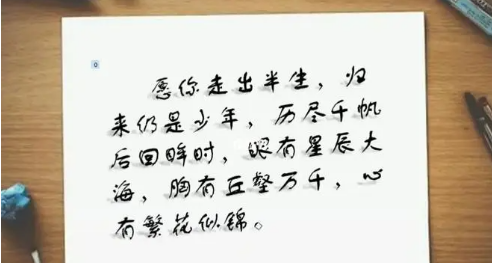 愿你走出半生，归
来仍是少年，历尽千帆
后回眸时，眼有星辰大
海，胸有丘壑万千，心
有繁花似锦。